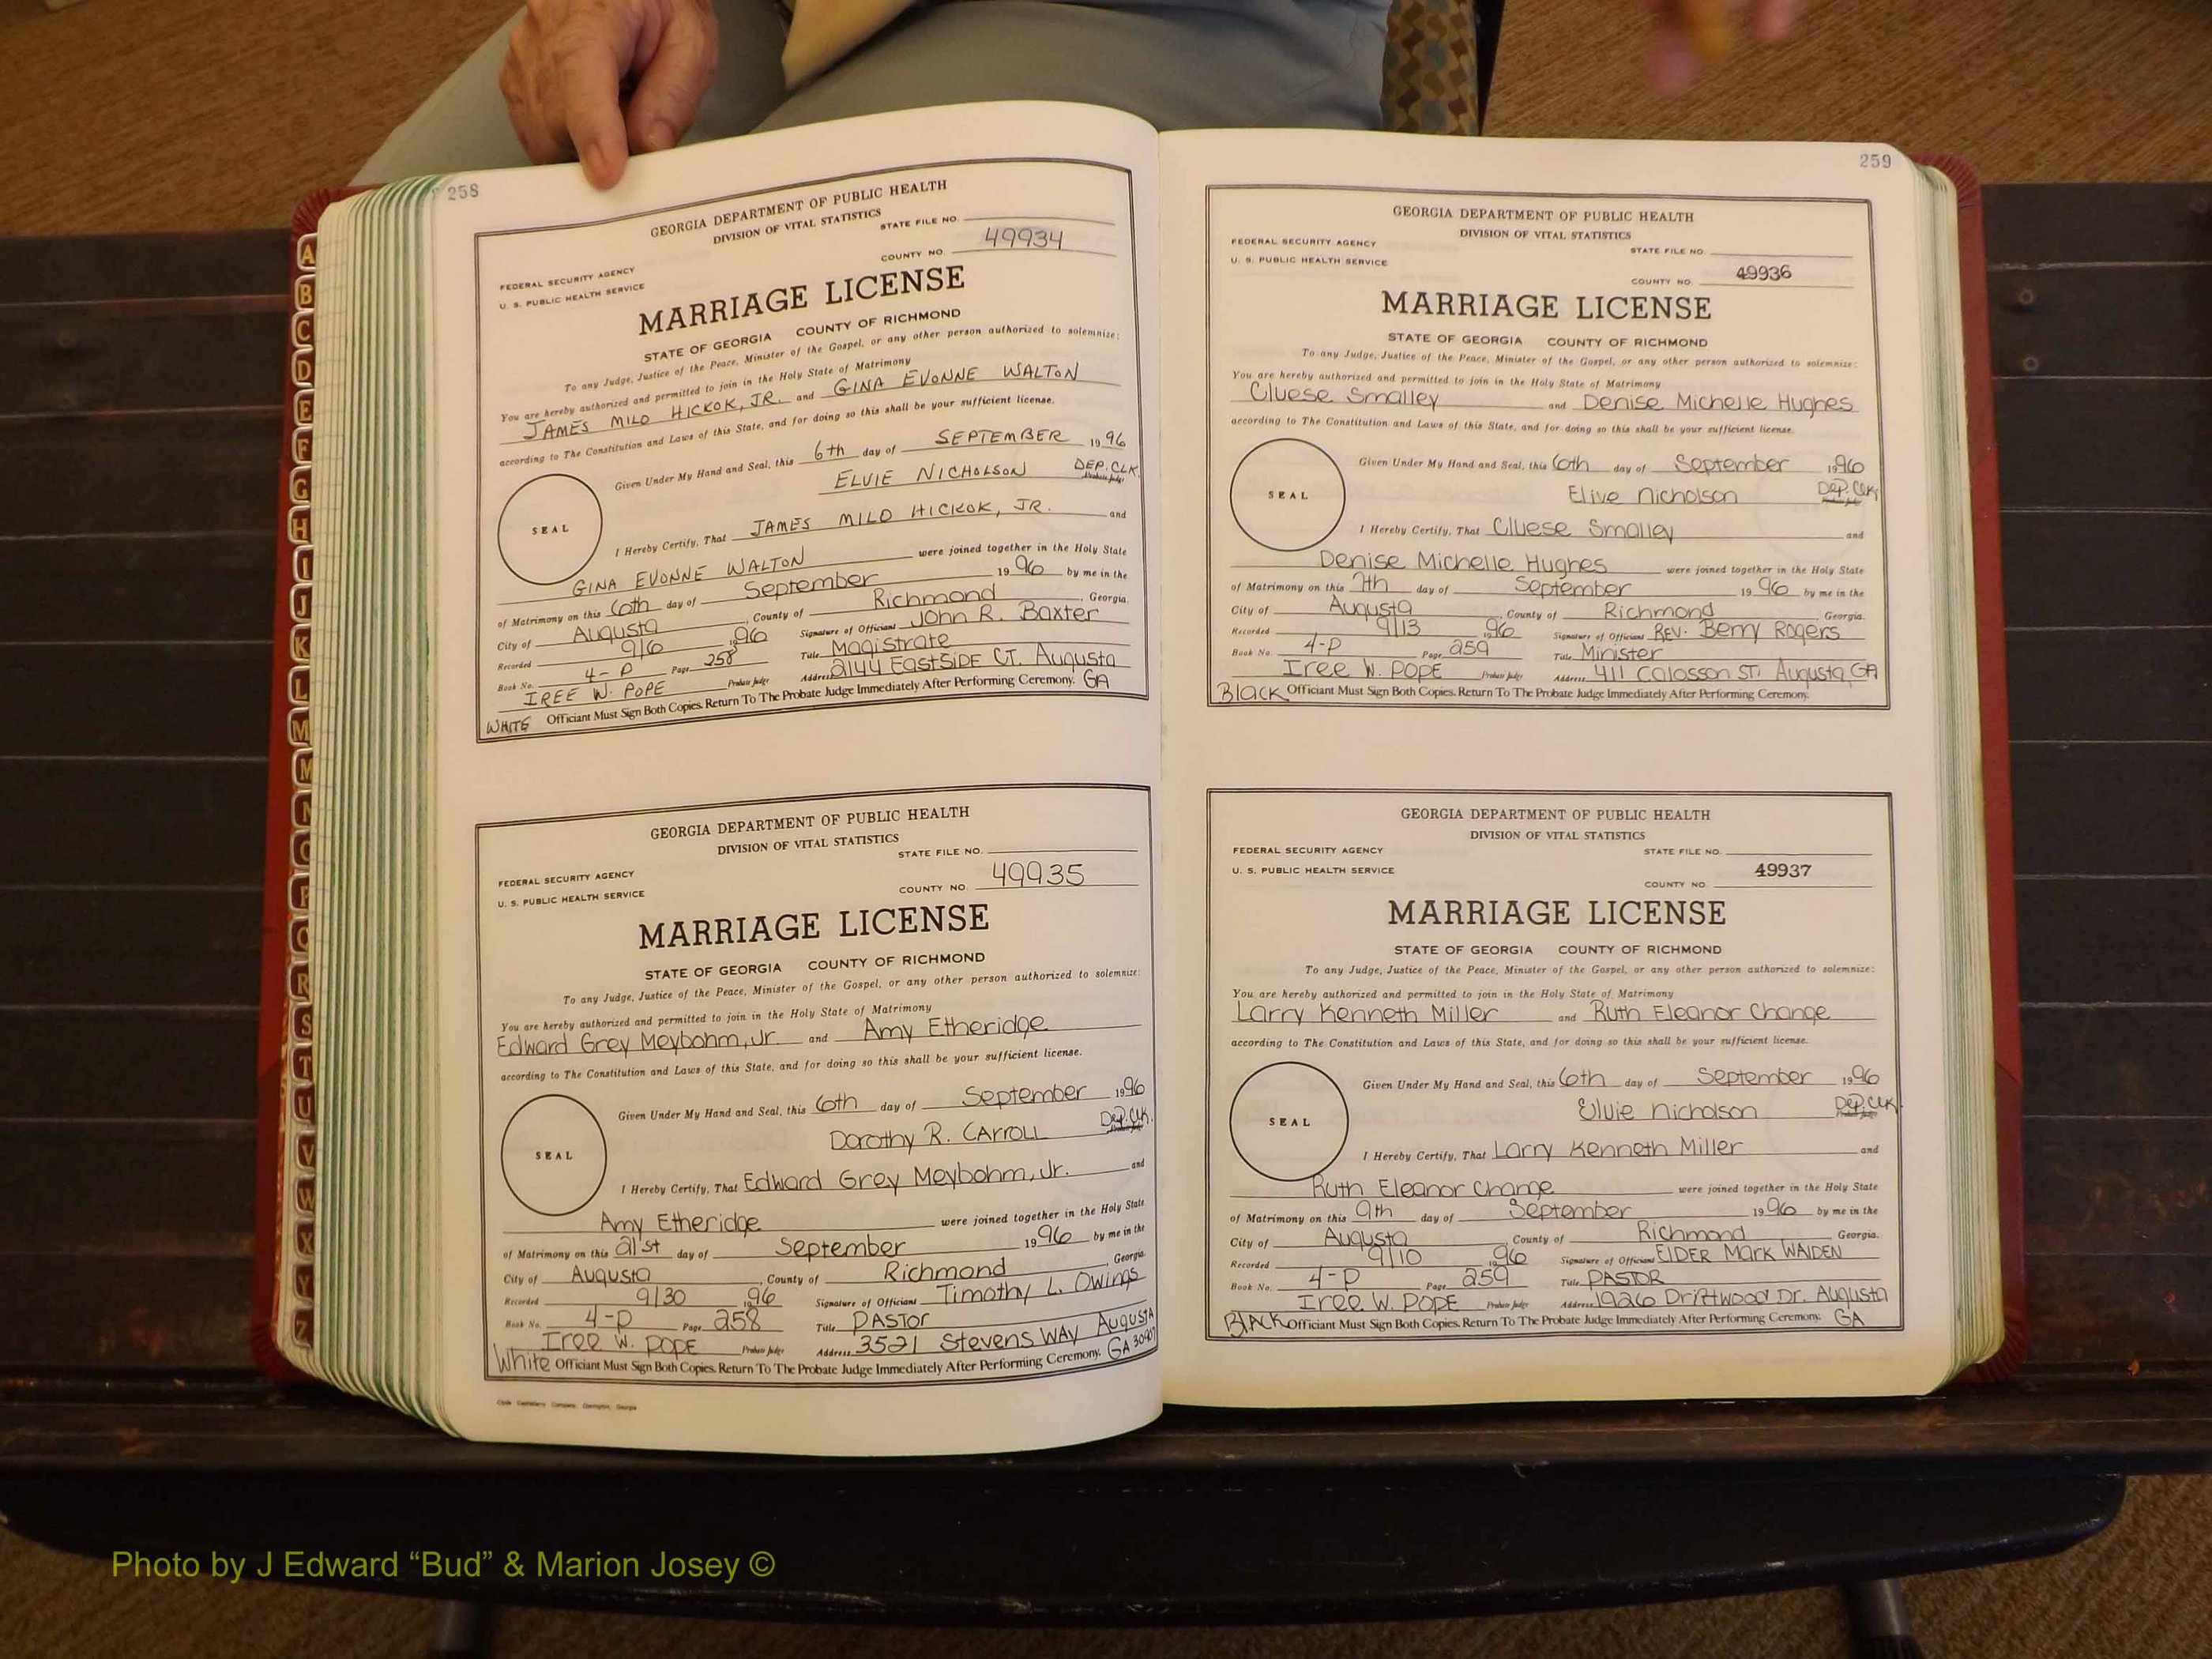 258
GEORGIA DEPARTMENT OF PUBLIC HEALTH
DIVISION OF VITAL STATISTICS
STATE FILE NO.
COUNTY NO. 49934
FEDERAL SECURITY AGENCY
U. S. PUBLIC HEALTH SERVICE
MARRIAGE LICENSE
STATE OF GEORGIA COUNTY OF RICHMOND
To any Judge, Justice of the Peace, Minister of the Gospel, or any other person authorized to solemnize:
You are hereby authorized and permitted to join in the Holy State of Matrimony
JAMES MILO HICKOK, JR. and GINA EVONNE WALTON
according to The Constitution and Laws of this State, and for doing so this shall be your sufficient license.
Given Under My Hand and Seal, this 6th day of SEPTEMBER 1996
ELVIE NICHOLSON DEP. CLK.
Probate Judge
SEAL
I Hereby Certify, That JAMES MILO HICKOK, JR. and
GINA EVONNE WALTON were joined together in the Holy State
of Matrimony on this 6th day of September 1996 by me in the
City of Augusta, County of Richmond, Georgia.
Recorded 9/6 1996 Signature of Officiant John R. Baxter
Book No. 4-P Page 258 Title Magistrate
IREE W. POPE Probate Judge Address 2144 EastSIDE CT. Augusta
WHITE Officiant Must Sign Both Copies. Return To The Probate Judge Immediately After Performing Ceremony. GA
GEORGIA DEPARTMENT OF PUBLIC HEALTH
DIVISION OF VITAL STATISTICS
STATE FILE NO.
FEDERAL SECURITY AGENCY
COUNTY NO. 49935
U. S. PUBLIC HEALTH SERVICE
MARRIAGE LICENSE
STATE OF GEORGIA COUNTY OF RICHMOND
To any Judge, Justice of the Peace, Minister of the Gospel, or any other person authorized to solemnize:
You are hereby authorized and permitted to join in the Holy State of Matrimony
Edward Grey Meybohm, Jr. and Amy Etheridge
according to The Constitution and Laws of this State, and for doing so this shall be your sufficient license.
Given Under My Hand and Seal, this 6th day of September 1996
Dorothy R. CArroLL Dep. Clk.
SEAL
I Hereby Certify, That Edward Grey Meybohm, Jr. and
Amy Etheridge were joined together in the Holy State
of Matrimony on this 21st day of September 1996 by me in the
City of Augusta, County of Richmond Georgia.
Recorded 9/30 1996 Signature of Officiant Timothy L. Owings
Book No. 4-P Page 258 Title PAStor
Iree W. POPE Probate Judge Address 3521 Stevens WAY AugustA
White Officiant Must Sign Both Copies. Return To The Probate Judge Immediately After Performing Ceremony. GA 30907
259
GEORGIA DEPARTMENT OF PUBLIC HEALTH
DIVISION OF VITAL STATISTICS
FEDERAL SECURITY AGENCY
STATE FILE NO.
U. S. PUBLIC HEALTH SERVICE
COUNTY NO. 49936
MARRIAGE LICENSE
STATE OF GEORGIA COUNTY OF RICHMOND
To any Judge, Justice of the Peace, Minister of the Gospel, or any other person authorized to solemnize:
You are hereby authorized and permitted to join in the Holy State of Matrimony
Cluese Smalley and Denise Michelle Hughes
according to The Constitution and Laws of this State, and for doing so this shall be your sufficient license.
Given Under My Hand and Seal, this 6th day of September 1996
Elive Nicholson Dep. Clk.
SEAL
I Hereby Certify, That Cluese Smalley and
Denise Michelle Hughes were joined together in the Holy State
of Matrimony on this 7th day of September 1996 by me in the
City of Augusta, County of Richmond, Georgia.
Recorded 9/13 1996 Signature of Officiant REV. Berry Rogers
Book No. 4-P Page 259 Title Minister
Iree W. POPE Probate Judge Address 411 Calosson ST. Augusta, GA
Black Officiant Must Sign Both Copies. Return To The Probate Judge Immediately After Performing Ceremony.
GEORGIA DEPARTMENT OF PUBLIC HEALTH
DIVISION OF VITAL STATISTICS
FEDERAL SECURITY AGENCY
STATE FILE NO.
U. S. PUBLIC HEALTH SERVICE
COUNTY NO. 49937
MARRIAGE LICENSE
STATE OF GEORGIA COUNTY OF RICHMOND
To any Judge, Justice of the Peace, Minister of the Gospel, or any other person authorized to solemnize:
You are hereby authorized and permitted to join in the Holy State of Matrimony
Larry Kenneth Miller and Ruth Eleanor Change
according to The Constitution and Laws of this State, and for doing so this shall be your sufficient license.
Given Under My Hand and Seal, this 6th day of September 1996
Elvie Nicholson Dep. Clk.
SEAL
I Hereby Certify, That Larry Kenneth Miller and
Ruth Eleanor Change were joined together in the Holy State
of Matrimony on this 9th day of September 1996 by me in the
City of Augusta, County of Richmond Georgia.
Recorded 9/10 1996 Signature of Officiant ElDER MArk WAlDEN
Book No. 4-P Page 259 Title PASTOR
Iree W. POPE Probate Judge Address 1926 Driftwood Dr. Augusta
BlAck Officiant Must Sign Both Copies. Return To The Probate Judge Immediately After Performing Ceremony. GA
A
B
C
D
E
F
G
H
I
J
K
L
M
N
O
P
Q
R
S
T
U
V
W
X
Y
Z
Photo by J Edward “Bud” & Marion Josey ©